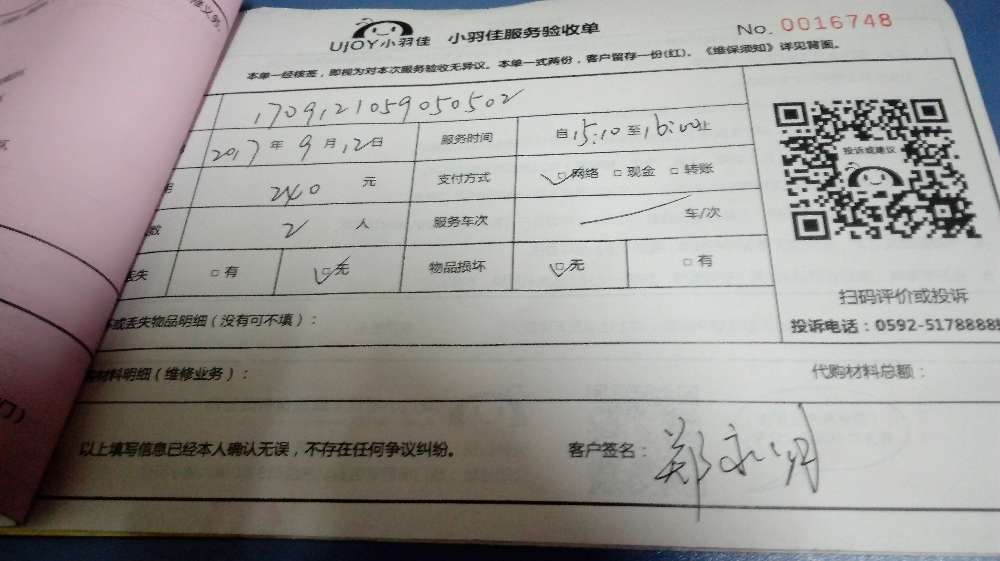 UJOY小羽佳 小羽佳服务验收单 No. 0016748
本单一经核签，即视为对本次服务验收无异议。本单一式两份，客户留存一份(红)。《维保须知》详见背面。
1709121059050502
2017年9月12日 服务时间 自15:10至16:00止
240 元 支付方式 ☑网络 □现金 □转账
2 人 服务车次 车/次
丢失 □有 ☑无 物品损坏 ☑无 □有
投诉或建议
扫码评价或投诉
投诉电话：0592-5178888
或丢失物品明细（没有可不填）：
材料明细（维修业务）： 代购材料总额：
以上填写信息已经本人确认无误，不存在任何争议纠纷。 客户签名：郑永